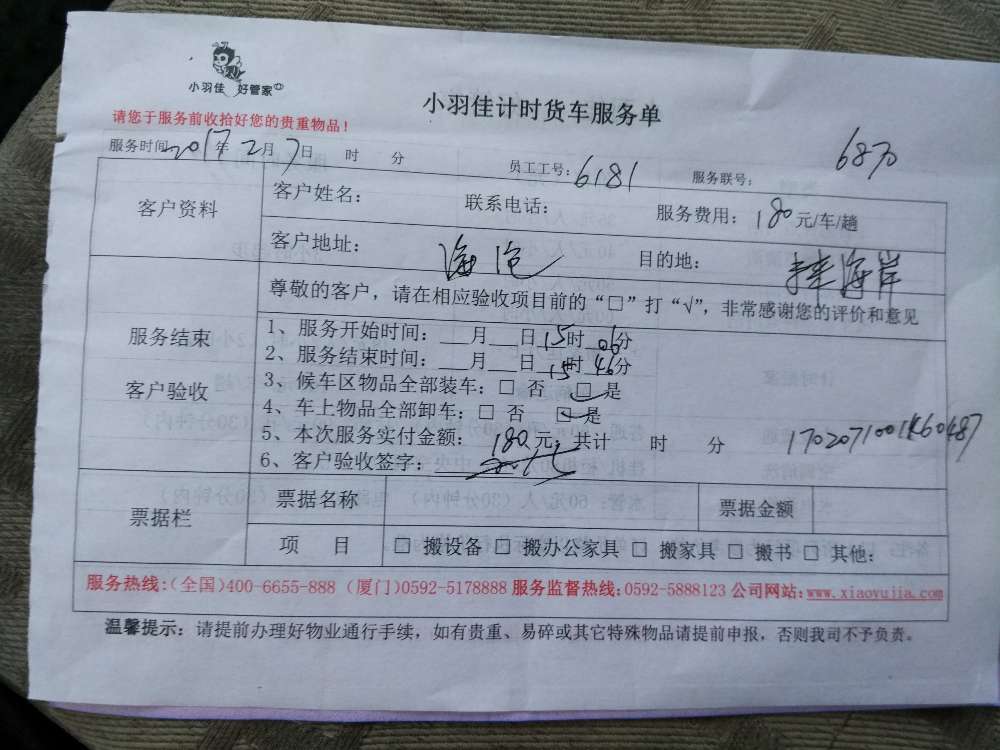 小羽佳 好管家
小羽佳计时货车服务单
请您于服务前收拾好您的贵重物品！
服务时间 2017年 2月 7日 时 分 员工工号：6181 服务联号： 6870
客户资料
客户姓名： 联系电话： 服务费用：180元/车/趟
客户地址： 海沧 目的地： 海岸
服务结束
客户验收
尊敬的客户，请在相应验收项目前的“□”打“√”，非常感谢您的评价和意见
1、服务开始时间：___月___日15时06分
2、服务结束时间：___月___日15时46分
3、候车区物品全部装车：□ 否 ☑是
4、车上物品全部卸车：□ 否 ☑是
5、本次服务实付金额： 180元，共计 时 分
6、客户验收签字：
票据栏
票据名称 票据金额
项 目 □ 搬设备 □ 搬办公家具 □ 搬家具 □ 搬书 □ 其他：
服务热线：（全国）400-6655-888 （厦门）0592-5178888 服务监督热线：0592-5888123 公司网站：www.xiaoyujia.com
温馨提示：请提前办理好物业通行手续，如有贵重、易碎或其它特殊物品请提前申报，否则我司不予负责。